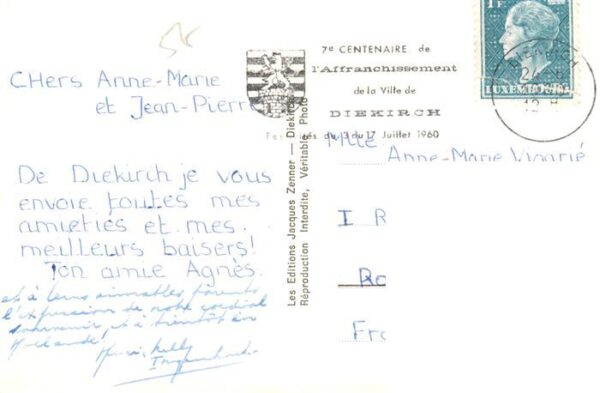 5k
CHers Anne-Marie
et Jean-Pierre
De Diekirch je vous
envoie toutes mes
amietiés et mes
meilleurs baisers!
Ton amie Agnès.
et à leurs aimables parents
l'expression de notre cordial
souvenir, et à bientôt en
Hollande!
Nelly
7e CENTENAIRE de
l'Affranchissement
de la Ville de
DIEKIRCH
du 3 du 17 Juillet 1960
1F
LUXEMBOURG
Les Editions Jacques Zenner — Diekirch
Réproduction Interdite, Véritable Photo
Mlle
Anne-Marie Vigarié
I R
Ro
Fra